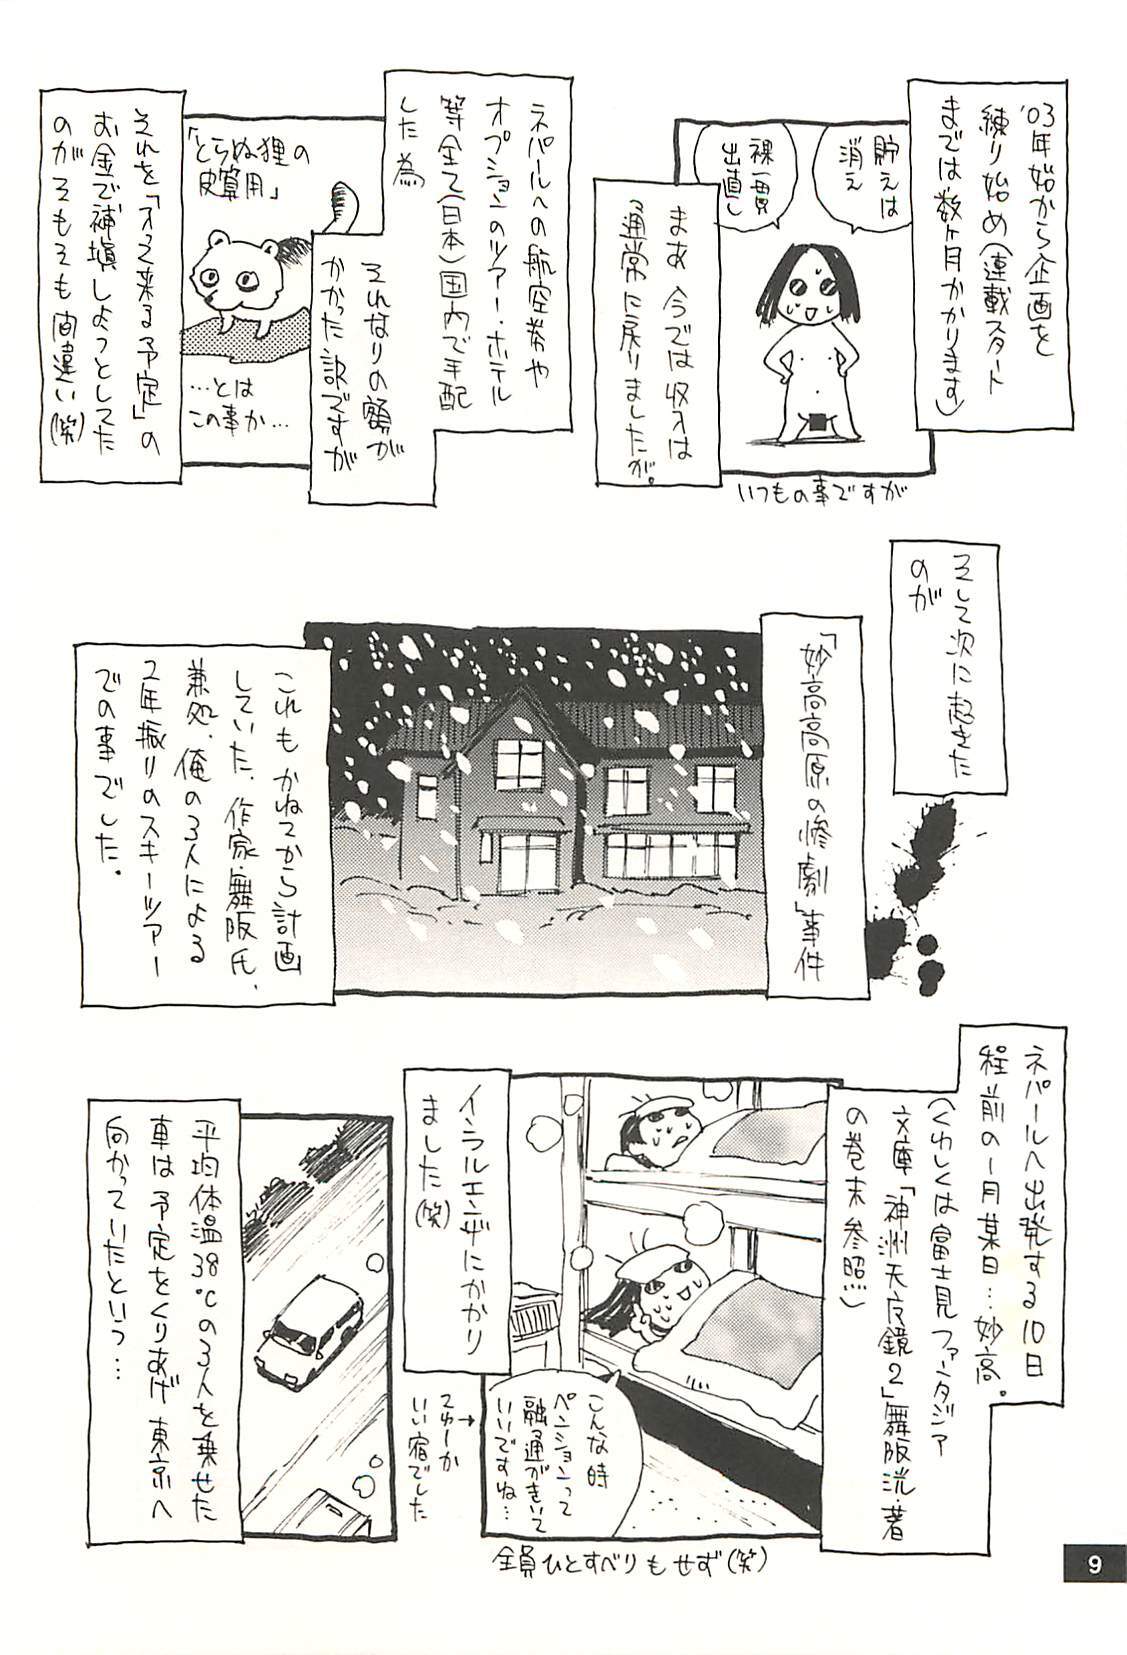 '03年始から企画を
練り始め(連載スタート
までは数ヶ月かかります)
貯えは
消え
裸一貫
出直し
まあ今では収入は
通常に戻りましたが。
いつもの事ですが
ネパールへの航空券や
オプションのツアー・ホテル
等全て(日本)国内で手配
した為
それなりの額が
かかった訳ですが
「とらぬ狸の
皮算用」
…とは
この事か…
それを「入って来る予定」の
お金で補填しようとしてた
のがそもそも間違い(笑)
そして次に起きた
のが
「妙高高原の惨劇」事件
これもかねてから計画
していた、作家・舞阪氏、
兼処、俺の3人による
2年振りのスキーツアー
での事でした。
ネパールへ出発する10日
程前の1月某日…妙高。
(くわしくは富士見ファンタジア
文庫「神洲天辰鏡2」舞阪洸・著
の巻末参照)
インフルエンザにかかり
ました(笑)
こんな時
ペンションって
融通がきいて
いいですね…
てゆーか
いい宿でした
全員ひとすべりもせず(笑)
平均体温38℃の3人を乗せた
車は予定をくりあげ東京へ
向かっていたという…
9